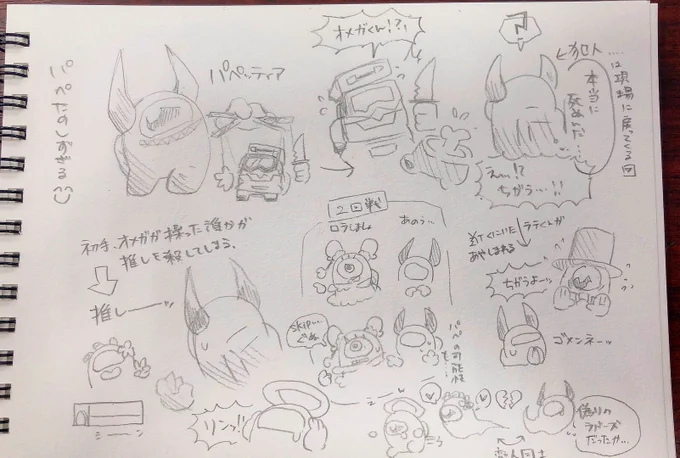 パペたのしすぎる
パペッティア
オメガくん!?
本当に
死ぬんだ…
は現場に戻ってくる回
えっ!?
ちがう…!!
初手、オメガが操った誰かが
推しを殺してしまう。
推しーーッ
2回戦
ロラしましょ
あのぅ…
近くにいた
ラテくんが
あやしまれる
ちがうよーッ
ゴメンネーッ
SKIP…
ぐぬぬ
パペの可能性
も…
リンっ!!
恋人同士
偽りの
ラバーズ
だったか…